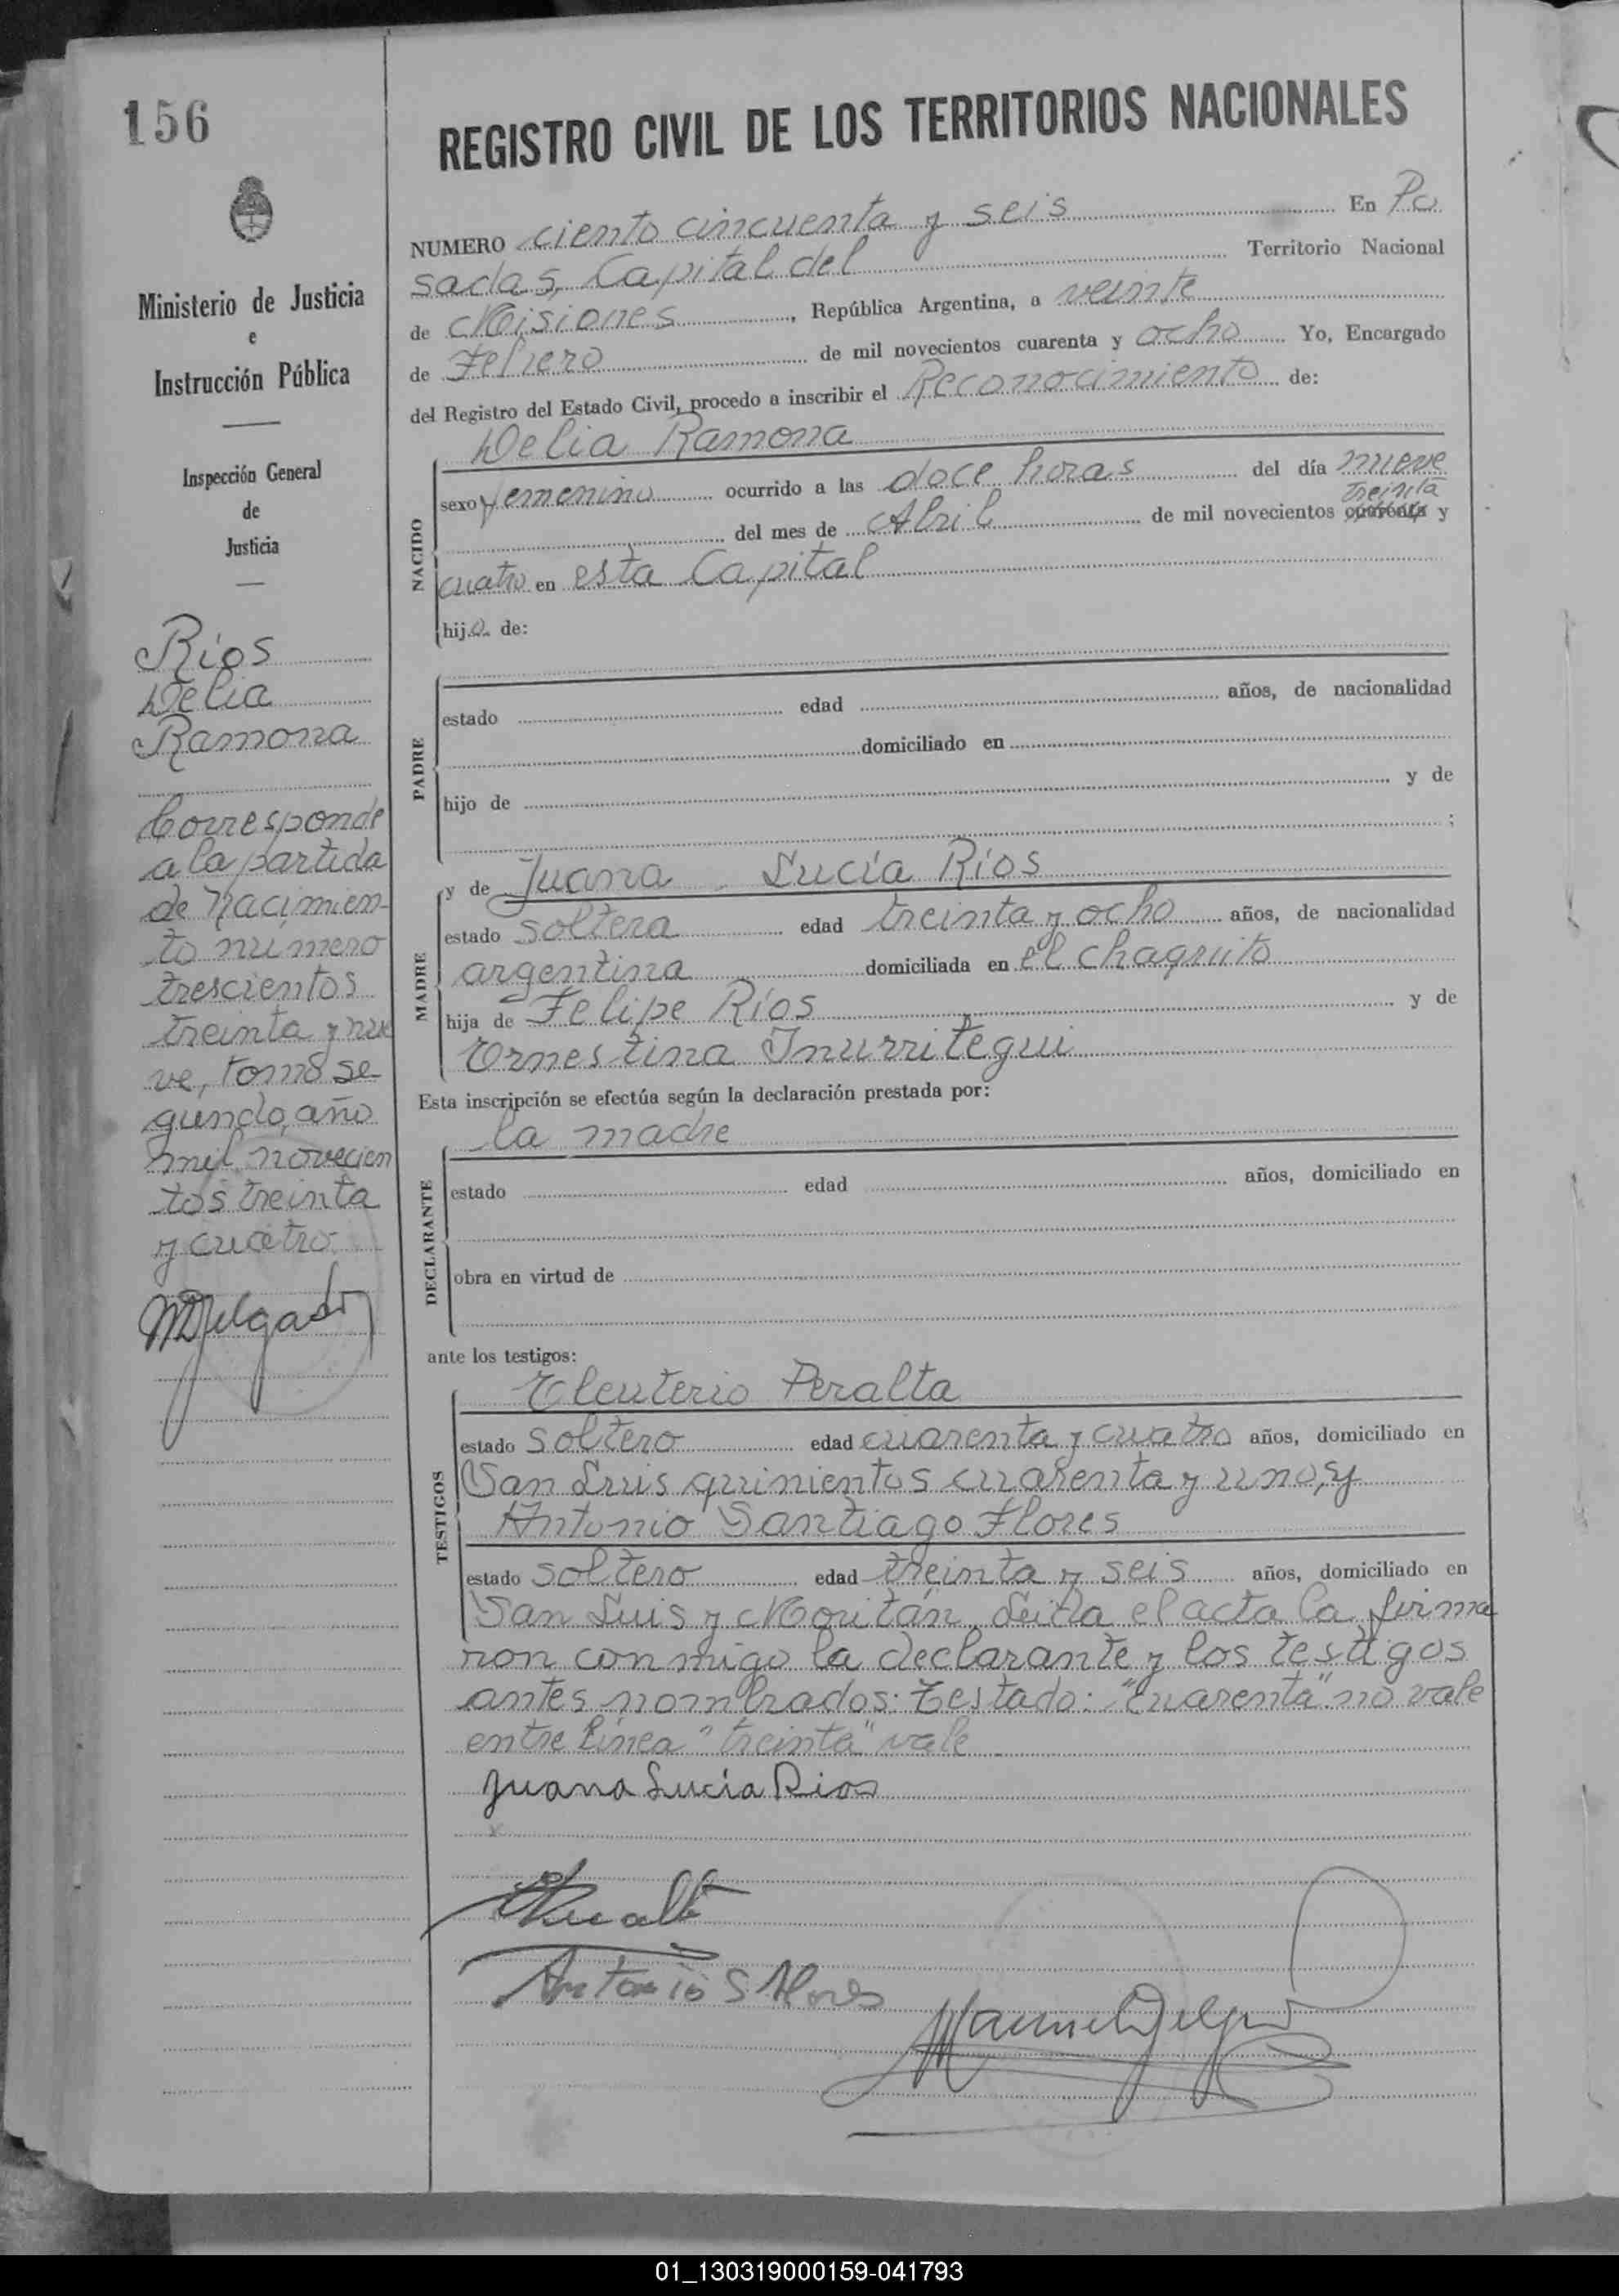 156
REGISTRO CIVIL DE LOS TERRITORIOS NACIONALES
Ministerio de Justicia
e
Instrucción Pública
Inspección General
de
Justicia
Rios
Delia
Ramona
Corresponde
a la partida
de Nacimien-
to número
trescientos
treinta y nue
ve, tomo se-
gundo, año
mil novecien
tos treinta
y cuatro.
MDelgado
NUMERO ciento cincuenta y seis En Po
sadas, Capital del Territorio Nacional
de Misiones, República Argentina, a veinte
de Febrero de mil novecientos cuarenta y ocho Yo, Encargado
del Registro del Estado Civil, procedo a inscribir el Reconocimiento de:
Delia Ramona
NACIDO
sexo femenino ocurrido a las doce horas del día nueve
treinta
del mes de Abril de mil novecientos cuarenta y
cuatro en esta Capital
hija de:
PADRE
estado edad años, de nacionalidad
domiciliado en
hijo de y de
;
MADRE
y de Juana Lucía Ríos
estado soltera edad treinta y ocho años, de nacionalidad
argentina domiciliada en el chaquito
hija de Felipe Ríos y de
Ernestina Inurritegui
Esta inscripción se efectúa según la declaración prestada por:
la madre
DECLARANTE
estado edad años, domiciliado en
obra en virtud de
ante los testigos:
Eleuterio Peralta
TESTIGOS
estado soltero edad cuarenta y cuatro años, domiciliado en
San Luis quinientos cuarenta y uno, y
Antonio Santiago Flores
estado soltero edad treinta y seis años, domiciliado en
San Luis y Moritán Leida el acta la firma
ron conmigo la declarante y los testigos
antes nombrados: Testado: "cuarenta" no vale
entre línea "treinta" vale
Juana Lucía Rios
Antonio S Flores
Manuel Delgado
01_130319000159-041793